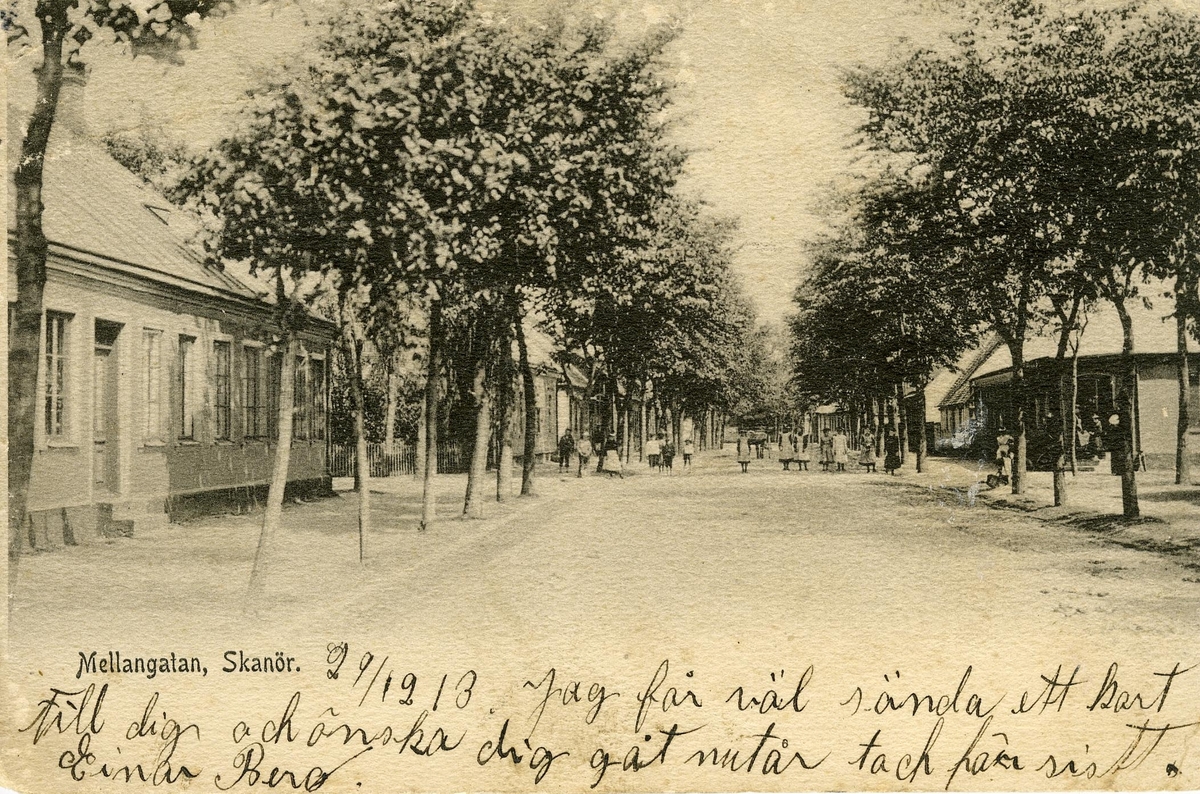 Mellangatan, Skanör. 29/12 13. Jag får väl sända ett kort
till dig och önska dig gåt nutår tack får sist.
Einar Berg.